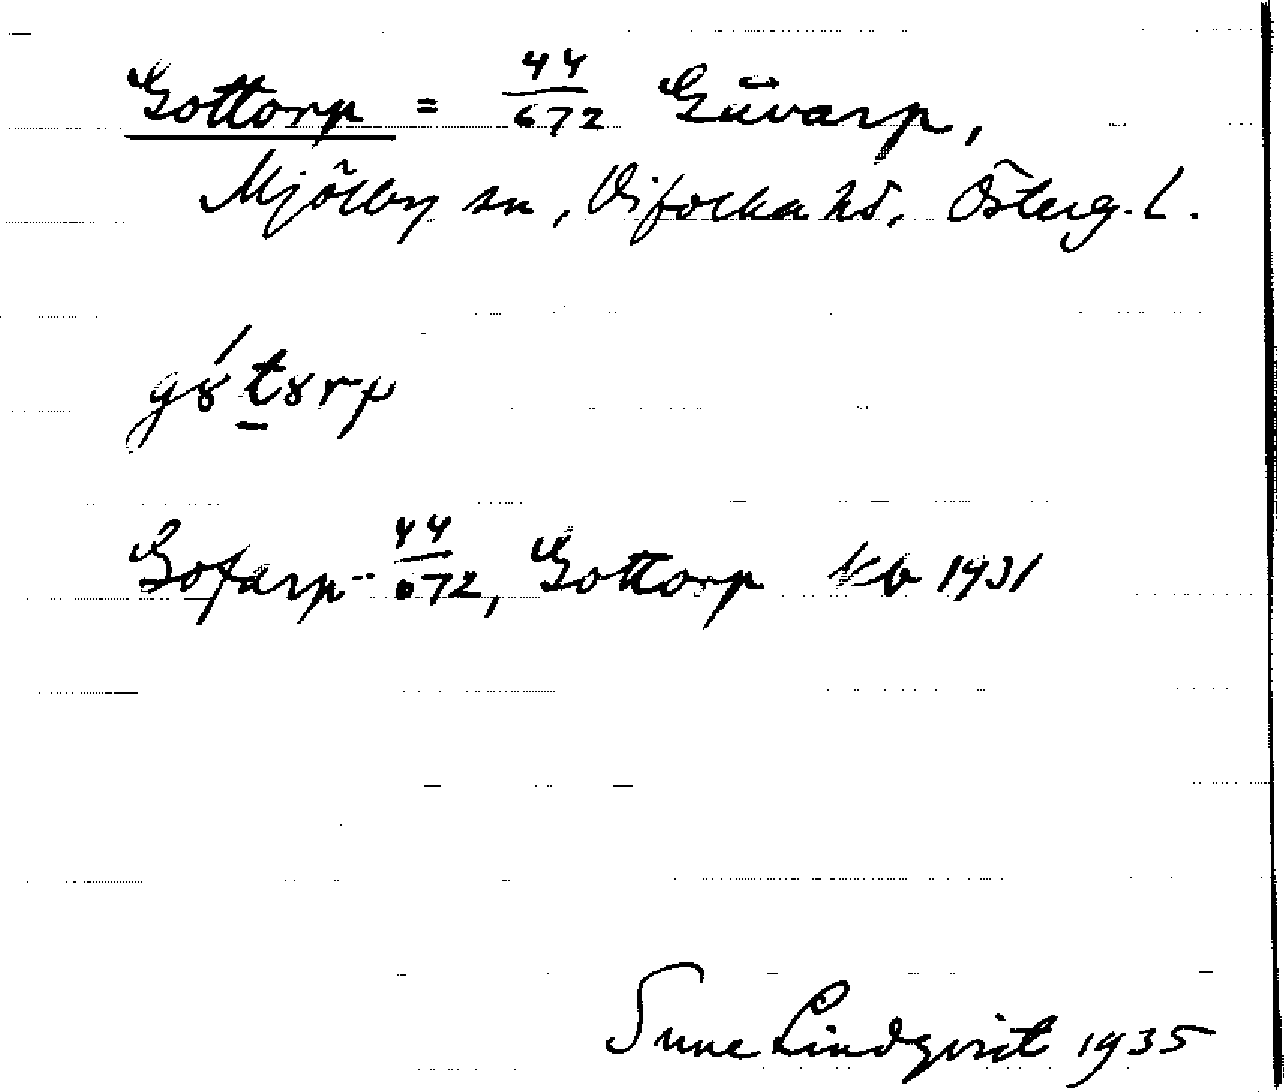 Gottorp = 44/672 Güvarp,
Mjölby sn, Vifolka hd, Österg. l.
gó̵torp
Gofarp 44/672, Gottorp kb 1931
Sune Lindqvist 1935